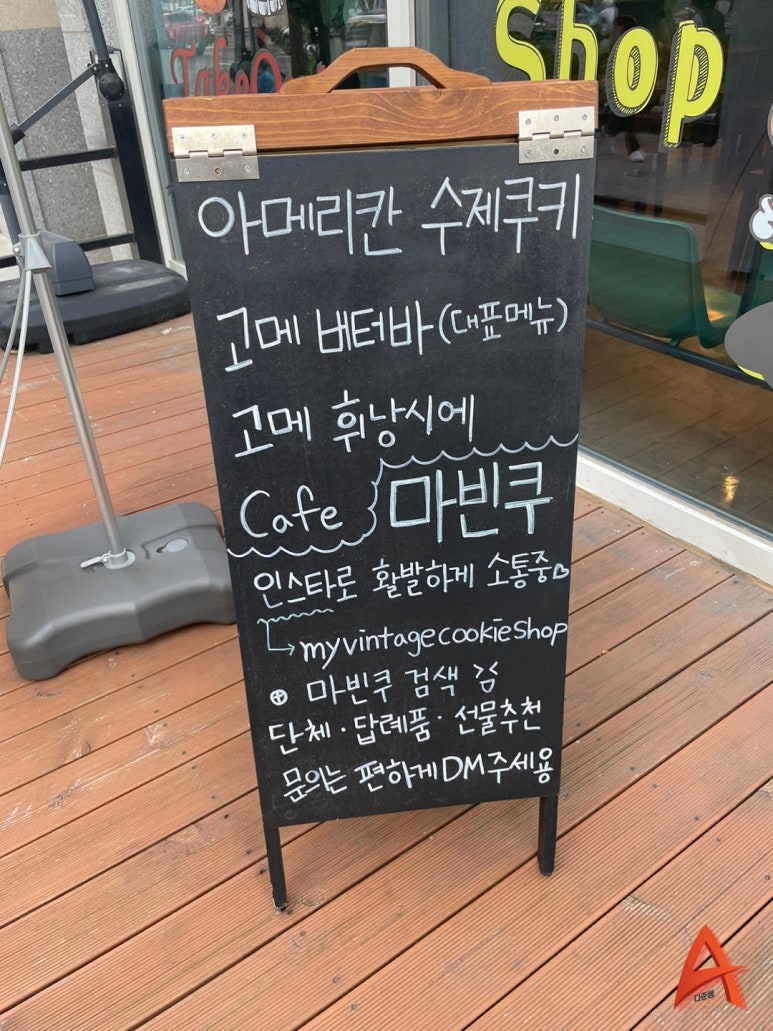 Shop
아메리칸 수제쿠키
고메 버터바 (대표메뉴)
고메 휘낭시에
Cafe 마빈쿠
인스타로 활발하게 소통중♡
→ myvintagecookieshop
마빈쿠 검색
단체·답례품·선물추천
문의는 편하게 DM주세용
다준맘